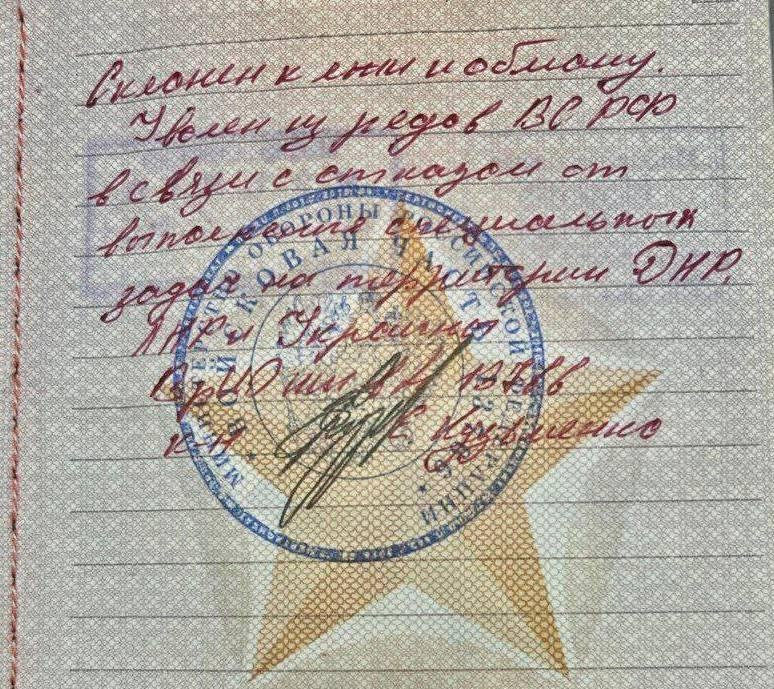 Склонен к лжи и обману.
Уволен из рядов ВС РФ
в связи с отказом от
выполнения специальных
задач на территории ДНР,
ЛНР и Украины
К-Н Е Кузьменко
МИНИСТЕРСТВО ОБОРОНЫ РОССИЙСКОЙ ФЕДЕРАЦИИ
ВОЙСКОВАЯ ЧАСТЬ